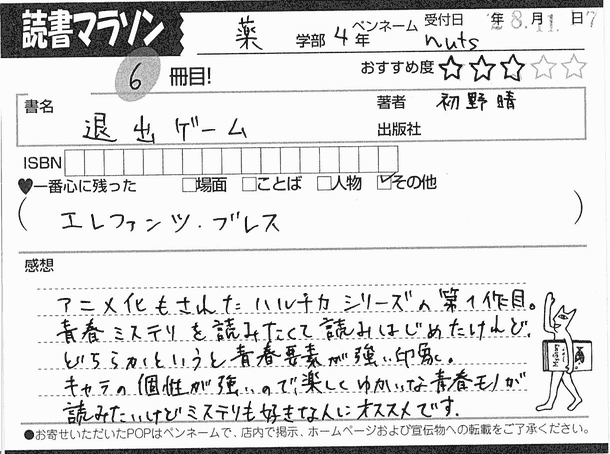 読書マラソン
薬 学部 4 年 ペンネーム nuts 受付日 '28年11月 日
6 冊目! おすすめ度 ☆☆☆☆☆
書名 退出ゲーム 著者 初野晴
出版社
ISBN
♥一番心に残った □場面 □ことば □人物 ☑その他
(エレファンツ・ブレス)
感想
アニメ化もされたハルチカシリーズの第1作目。
青春ミステリを読みたくて読みはじめたけれど、
どちらかというと青春要素が強い印象。
キャラの個性が強いので、楽しくゆかいな青春モノが
読みたいけどミステリも好きな人にオススメです。
Mystery
●お寄せいただいたPOPはペンネームで、店内で掲示、ホームページおよび宣伝物への転載をご了承ください。